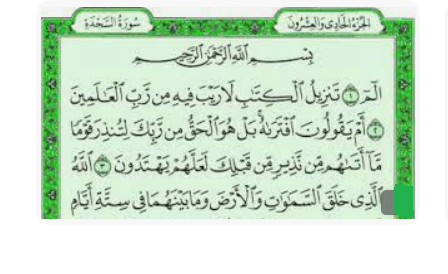 سُورَةُ السَّجْدَةِ الجُزْءُ الحَادِى وَالعِشْرُونَ
بِسْمِ ٱللَّهِ ٱلرَّحْمَٰنِ ٱلرَّحِيمِ
الٓمٓ ١ تَنزِيلُ ٱلْكِتَٰبِ لَا رَيْبَ فِيهِ مِن رَّبِّ ٱلْعَٰلَمِينَ
٢ أَمْ يَقُولُونَ ٱفْتَرَىٰهُ بَلْ هُوَ ٱلْحَقُّ مِن رَّبِّكَ لِتُنذِرَ قَوْمًا
مَّآ أَتَىٰهُم مِّن نَّذِيرٍ مِّن قَبْلِكَ لَعَلَّهُمْ يَهْتَدُونَ ٣ ٱللَّهُ
ٱلَّذِى خَلَقَ ٱلسَّمَٰوَٰتِ وَٱلْأَرْضَ وَمَا بَيْنَهُمَا فِى سِتَّةِ أَيَّامٍ